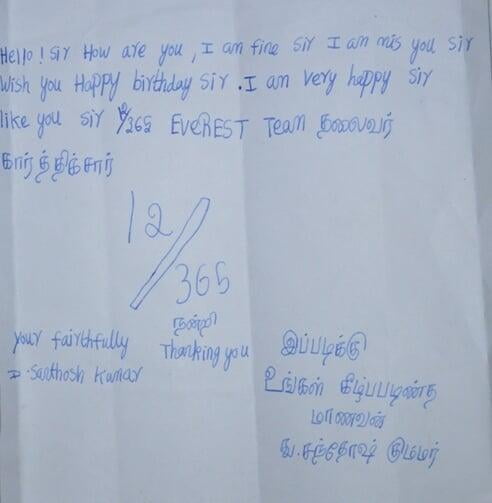 Hello! Sir How are you, I am fine sir I am mis you sir
Wish you Happy birthday sir. I am very happy sir
like you sir 12/365 EVEREST Team தலைவர்
கார்த்திக்சார்
12/365
நன்றி
Thanking you
your fairthfully
D. Santhosh Kumar
இப்படிக்கு
உங்கள் கீழ்ப்படிண்த
மாணவன்
து.சந்தோஷ் குமமர்